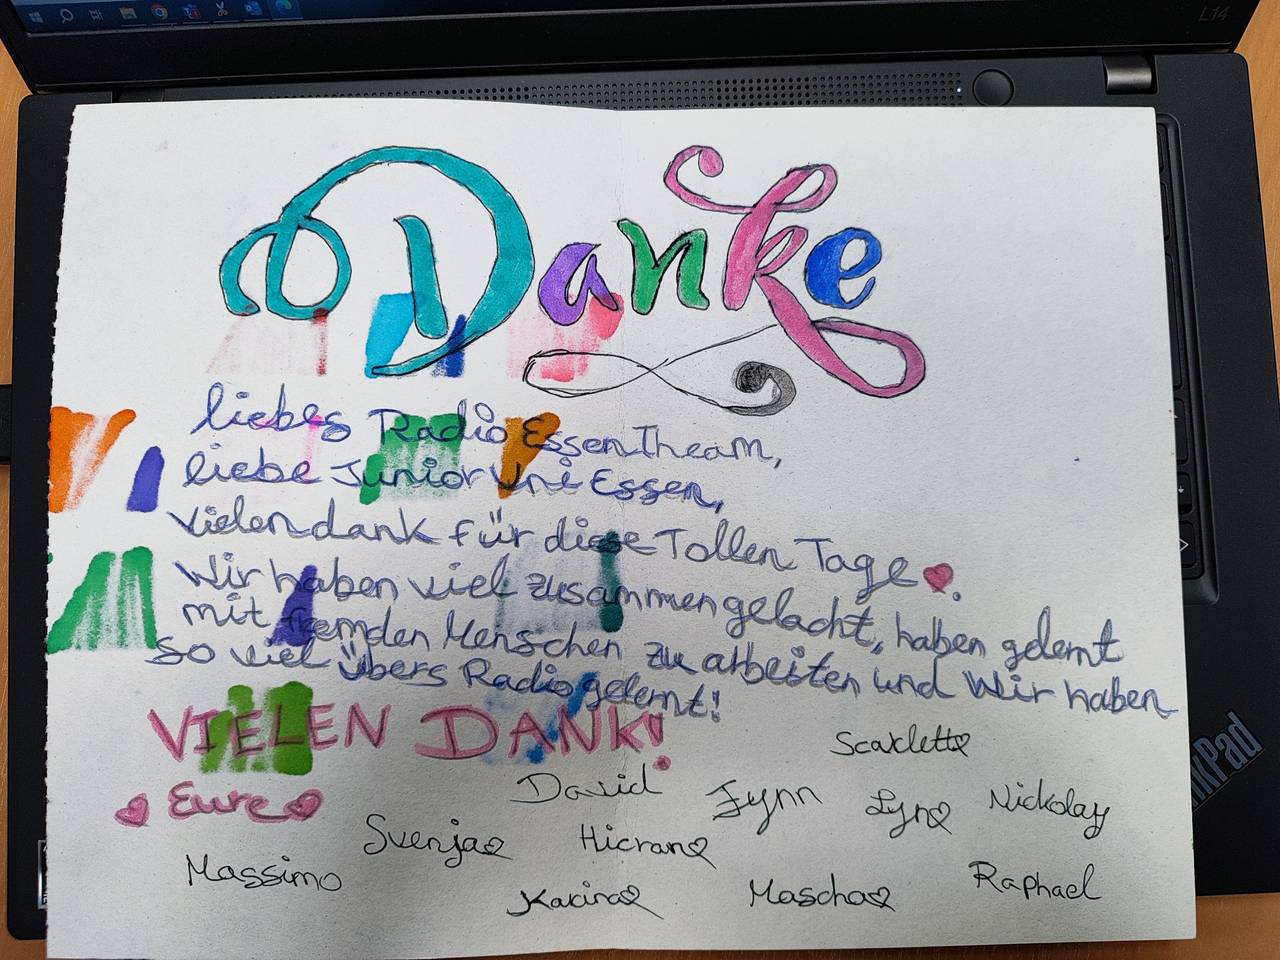 L14
Danke
liebes Radio Essen Theam,
liebe Junior Uni Essen,
vielen dank für diese Tollen Tage.
Wir haben viel zusammen gelacht, haben gelernt
mit fremden Menschen zu arbeiten und Wir haben
so viel übers Radio gelernt!
VIELEN DANK!
Scarlett
Eure
David
Fynn
Lyn
Nickolay
Svenja
Hicran
Massimo
Karina
Mascha
Raphael
nkPad